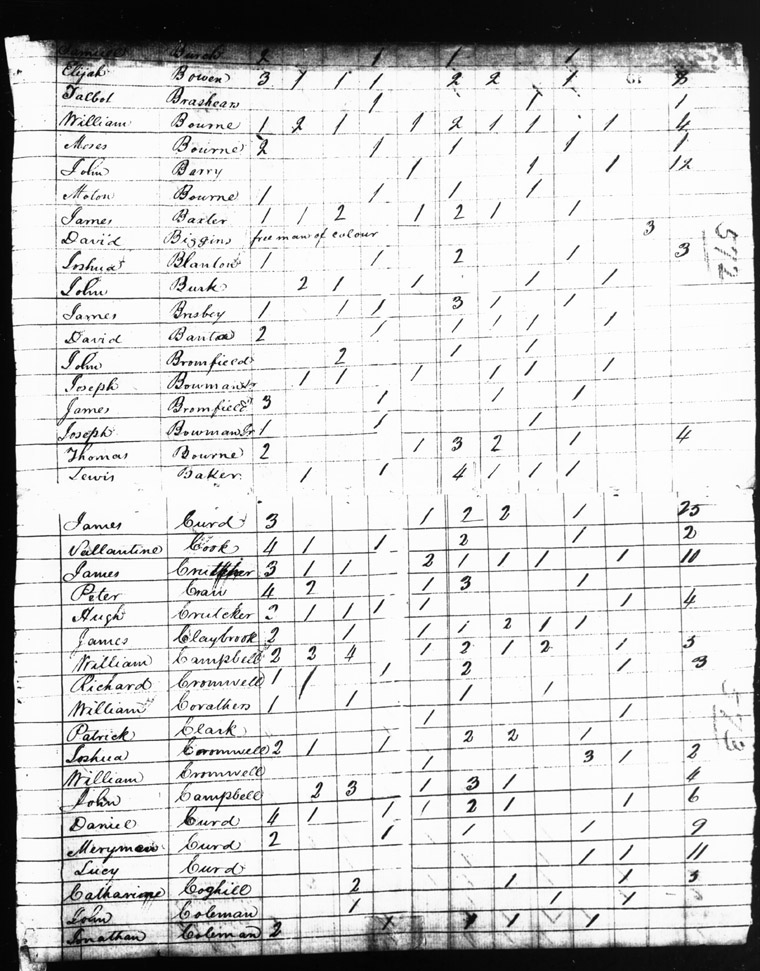 Burch 2 1 1 1
Elijah Bowen 3 1 1 1 2 2 1 8
Talbot Brashears 1 1 1
William Bourne 1 2 1 1 2 1 1 1 4
Moses Bourne 2 1 1 1 1
John Barry 1 1 1 12
Bourne 1 1 1 1
James Baxter 1 1 2 1 2 1 1
David Biggins free man of colour 3
Joshua Blanton 1 1 2 1 3
John Burk 2 1 1 1 1
James Brisbey 1 1 1 3 1 1
David Banta 2 1 1 1 1 1
John Bromfield 2 1 1
Joseph Bowman Sr 1 1 1 1 1 1
James Bromfield 3 1 1 1
Joseph Bowman Jr 1 1 1
Thomas Bourne 2 1 3 2 1 4
Lewis Baker 1 1 4 1 1 1
572
James Curd 3 1 2 2 1 25
Vallantine Cook 4 1 1 2 1 2
James 3 1 1 2 1 1 1 1 10
Peter 4 2 1 3 1
Hugh Crutcker 2 1 1 1 1 1 4
James Claybrook 2 1 1 1 2 1 1
William Campbell 2 2 4 1 2 1 2 1 5
Richard Cromwell 1 1 1 2 1 3
William Corathers 1 1 1 1
Patrick Clark 1 1
Joshua Coromwell 2 1 1 2 2 1
William Cromwell 1 3 1 2
John Campbell 2 3 1 3 1 4
Daniel Curd 4 1 1 1 2 1 1 6
Merymen Curd 2 1 1 1 9
Lucy Curd 1 1 11
Catharine Coghill 2 1 1 5
John Coleman 1 1 1
Jonathan Coleman 2 1 1 1 1
573